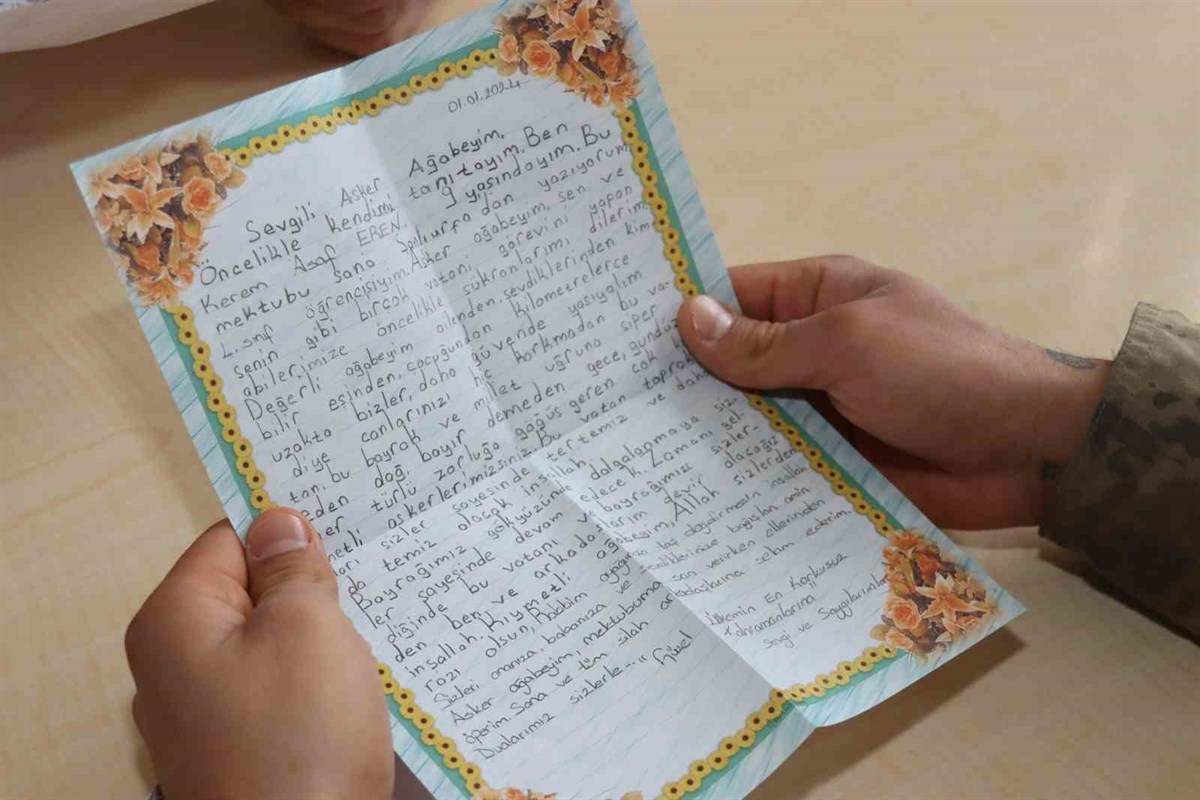 01.01.2024
Sevgili Asker Ağabeyim,
Öncelikle kendimi tanıtayım. Ben
Kerem Asaf EREN. 9 yaşındayım. Bu
mektubu sana Şanlıurfa'dan yazıyorum.
4. sınıf öğrencisiyim. Asker ağabeyim, sen ve
senin gibi birçok vatani görevini yapan
abilerimize öncelikle şükranlarımı dilerim.
Değerli ağabeyim ailenden, sevdiklerinden kim
bilir eşinden, çocuğundan kilometrelerce
uzakta bizler, daha güvende yaşayalım
diye canlarınızı korkmadan bu va-
tan, bu bayrak ve millet uğruna siper
eden dağ, bayır demeden gece, gündüz
her türlü zorluğa göğüs geren çok
metli askerlerimizsiniz. Bu vatan toprak
ları sizler sayesinde tertemiz ve daha
da temiz olacak inşallah.
Bayrağımız gökyüzünde dalgalanmaya siz-
ler sayesinde devam edecek. Zamanı gel-
diğinde bu vatanı ve bayrağımızı sizler-
den ben ve arkadaşlarım devir alacağız
inşallah. Kıymetli ağabeyim, Allah sizlerden
razı olsun, Rabbim taş değdirmesin inşallah
Sizleri ananıza, babanıza ve bağışlasın amin
Asker ağabeyim, mektubuma son verirken ellerinden
öperim. Sana ve tüm silah arkadaşlarına selam ederim.
Dualarımız sizlerle..." Güzel Ülkemin En Korkusuz
Kahramanlarına"
Sevgi ve Saygılarımla